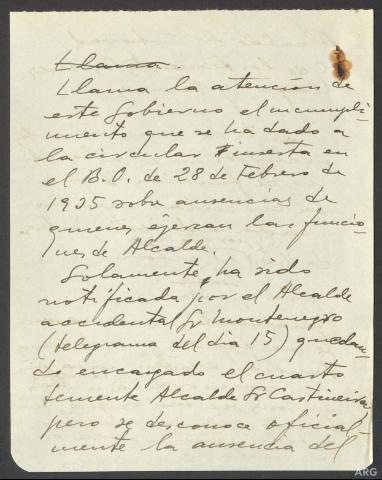 Llama.
Llama la atención de
este Gobierno el incumpli-
miento que se ha dado a
la circular inserta en
el B.O. de 28 de Febrero de
1935 sobre ausencias de
quienes ejerzan las funcio-
nes de Alcalde.
Solamente ha sido
notificada por el Alcalde
accidental Sr Montenegro
(telegrama del dia 15) quedan-
do encargado el cuarto
teniente Alcalde Sr Castiñeira
pero se desconoce oficial-
mente la ausencia del
ARG